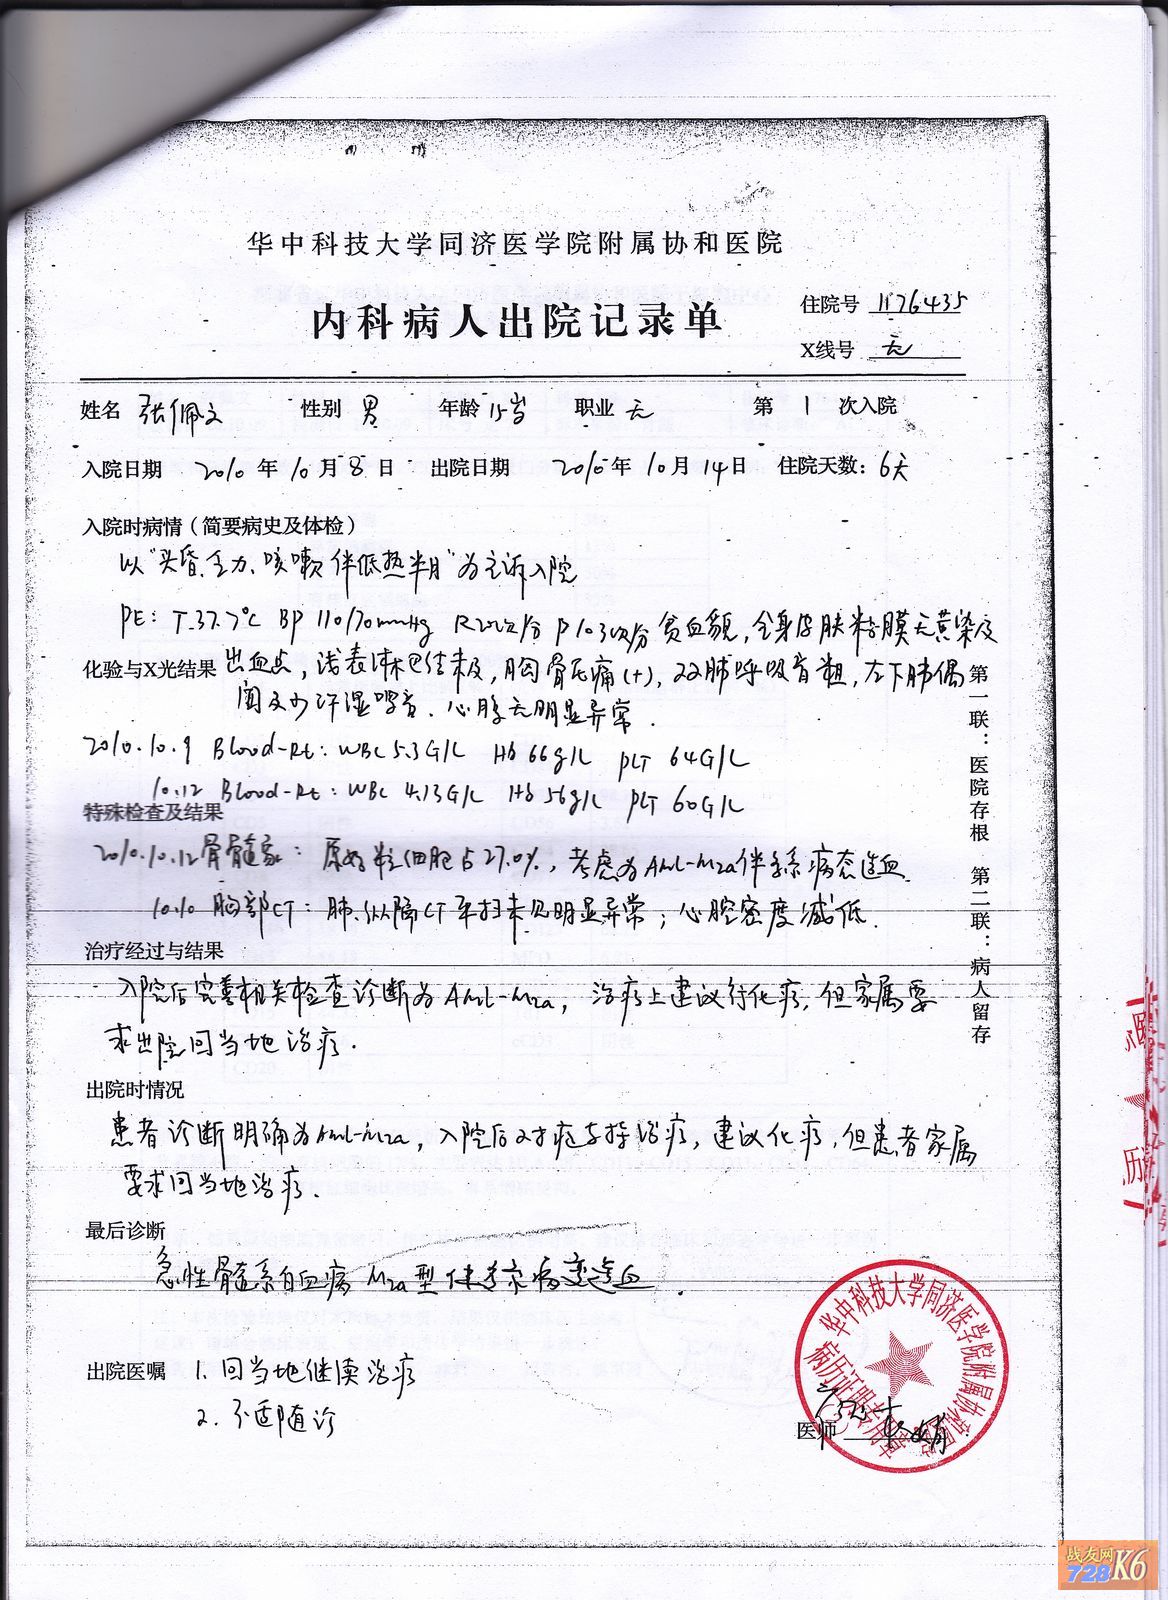 华中科技大学同济医学院附属协和医院
内科病人出院记录单
住院号 1176435
X线号 无
姓名 张佩文 性别 男 年龄 15岁 职业 无 第 1 次入院
入院日期 2010年10月8日 出院日期 2010年10月14日 住院天数：6天
入院时病情（简要病史及体检）
以"头昏、乏力、咳嗽伴低热半月"为主诉入院
PE: T.37.7°C BP 110/70mmHg R20次/分 P103次/分 贫血貌，全身皮肤粘膜无黄染及
化验与X光结果 出血点，浅表淋巴结未及，胸骨压痛(+)，双肺呼吸音粗，左下肺偶
闻及少许湿啰音．心脏无明显异常．
2010.10.9 Blood-Rt: WBC 5.3G/L Hb 66g/L PLT 64G/L
10.12 Blood-Rt: WBC 4.13G/L Hb 56g/L PLT 60G/L
特殊检查及结果
2010.10.12骨髓象：原始粒细胞占27.0%，考虑为AML-M2a伴多系病态造血．
10.10 胸部CT：肺、纵隔CT平扫未见明显异常；心腔密度减低．
治疗经过与结果
入院后完善相关检查诊断为AML-M2a，治疗上建议行化疗，但家属要
求出院回当地治疗．
出院时情况
患者诊断明确为AML-M2a，入院后对症支持治疗，建议化疗，但患者家属
要求回当地治疗．
最后诊断
急性髓系白血病 M2a型 伴多系病变造血．
出院医嘱 1. 回当地继续治疗
2. 不适随诊
医师
第一联：医院存根 第二联：病人留存
华中科技大学同济医学院附属协和医院
病历证明专用章
战友网
728K6